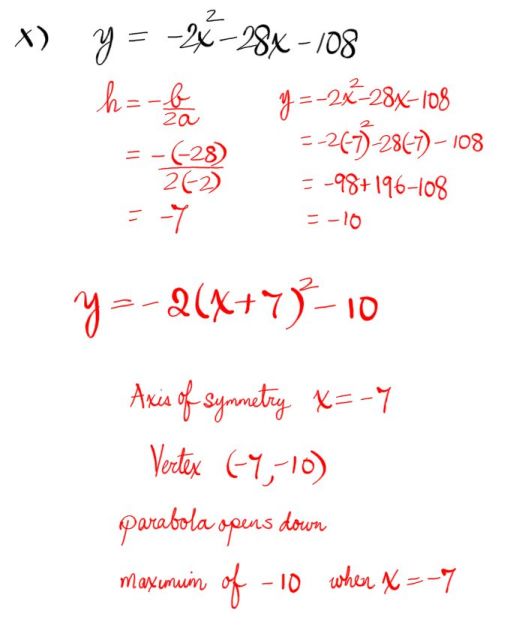 x) y = -2x²-28x-108
h = -b/2a
= -(-28)/2(-2)
= -7
y = -2x²-28x-108
= -2(-7)²-28(-7)-108
= -98+196-108
= -10
y = -2(x+7)²-10
Axis of symmetry x = -7
Vertex (-7,-10)
parabola opens down
maximum of -10 when x = -7